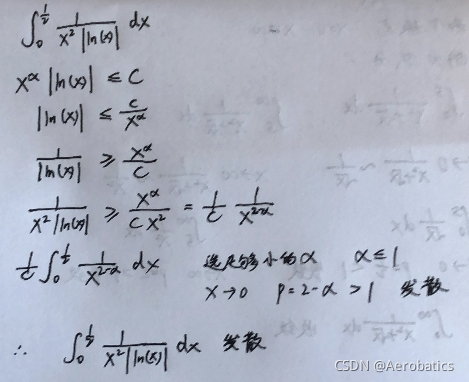 ∫₀^{1/2} 1/(x²|ln(x)|) dx
x^α |ln(x)| ≤ C
|ln(x)| ≤ C/x^α
1/|ln(x)| ≥ x^α/C
1/(x²|ln(x)|) ≥ x^α/(Cx²) = 1/C 1/x^{2-α}
1/C ∫₀^{1/2} 1/x^{2-α} dx 选足够小的α α≤1
x→0 P=2-α>1 发散
∴ ∫₀^{1/2} 1/(x²|ln(x)|) dx 发散
CSDN @Aerobatics